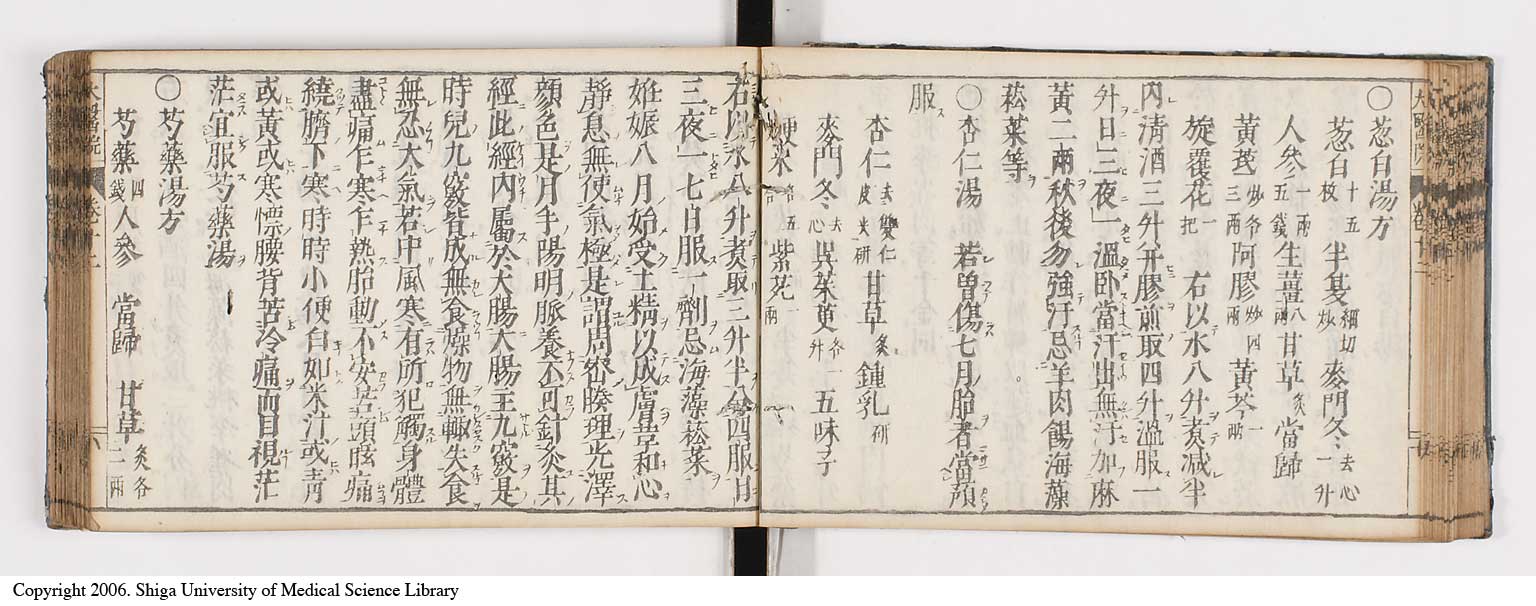 ○葱白湯方
葱白十五枚 半夏細切炒 麥門冬去心一升
人參一兩五錢 生薑八兩 甘草炙 當歸
黃芪炒各三兩 阿膠炒四兩 黃芩一兩
旋覆花一把 右以水八升煮減半
內清酒三升并膠煎取四升溫服一
升日三夜一溫卧當汗出無汗加麻
黃二兩秋後勿強汗忌羊肉餳海藻
菘菜等
○杏仁湯 若曽傷七月胎者當預
服
杏仁去雙仁皮尖研 甘草炙 鍾乳研
麥門冬去心 吳茱萸各一升 五味子
粳米各五 紫菀一兩
右以水八升煮取三升半分四服日
三夜一七日服一劑忌海藻菘菜
姙娠八月始受土精以成膚革和心
靜息無使氣極是謂周密腠理光澤
顏色是月手陽明脈養不可針灸其
經此經內屬於大腸大腸主九竅是
時兒九竅皆成無食燥物無輙失食
無忍大氣若中風寒有所犯觸身體
盡痛乍寒乍熱胎動不安苦頭眩痛
繞臍下寒時時小便白如米汁或青
或黃或寒慄腰背苦冷痛而目視茫
茫宜服芍藥湯
○芍藥湯方
芍藥四錢 人參 當歸 甘草炙各二兩
大醫院 卷十二
Copyright 2006. Shiga University of Medical Science Library